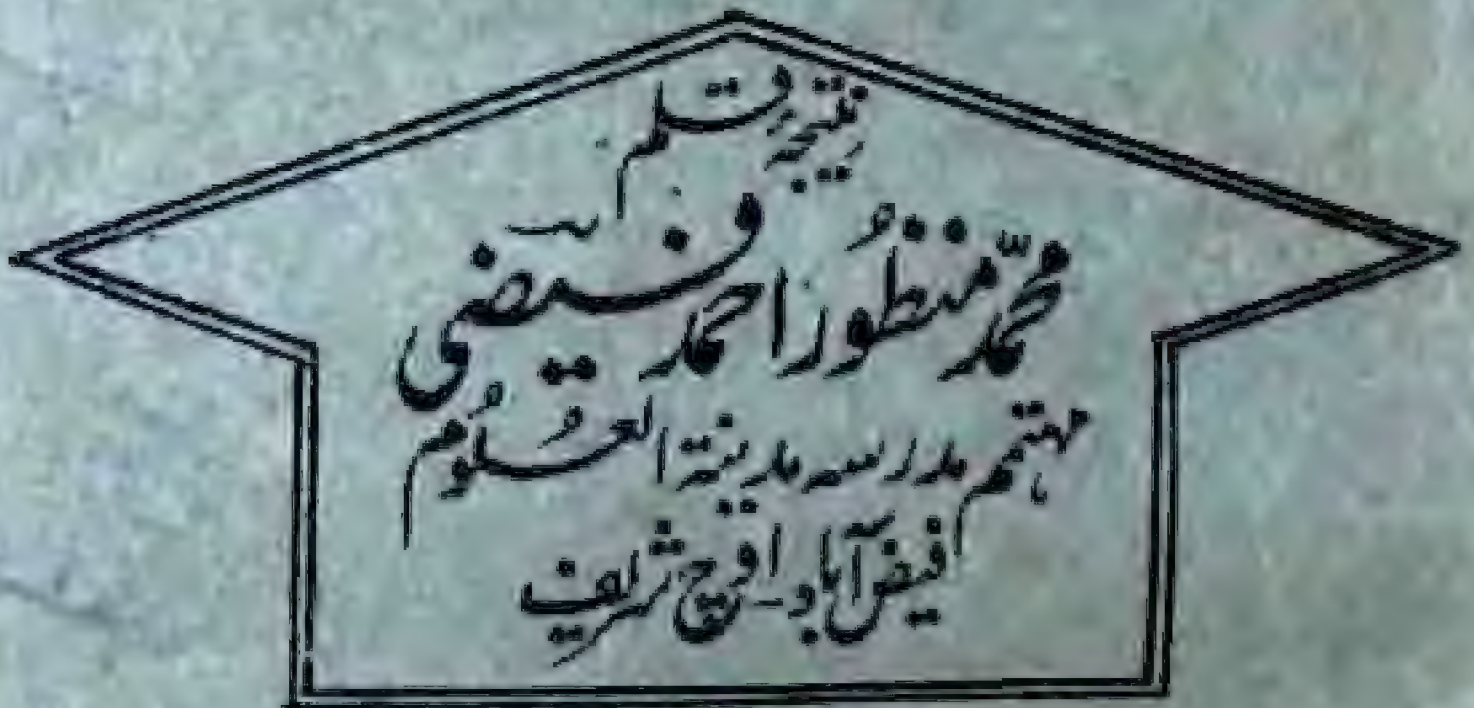 نتیجۂ قلم
محمّد منظُور احمد فیضی
مہتمم مدرسہ مدینۃ العُلُوم
فیض آباد۔ اوچ شریف